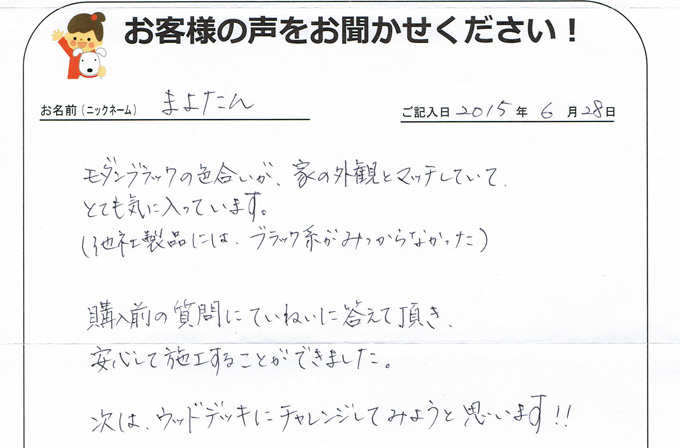 お客様の声をお聞かせください！
お名前（ニックネーム） まよたん ご記入日 2015 年 6 月 28 日
モダンブラックの色合いが、家の外観とマッチしていて、
とても気に入っています。
（他社製品には、ブラック系がみつからなかった）
購入前の質問にていねいに答えて頂き、
安心して施工することができました。
次は、ウッドデッキにチャレンジしてみようと思います!!